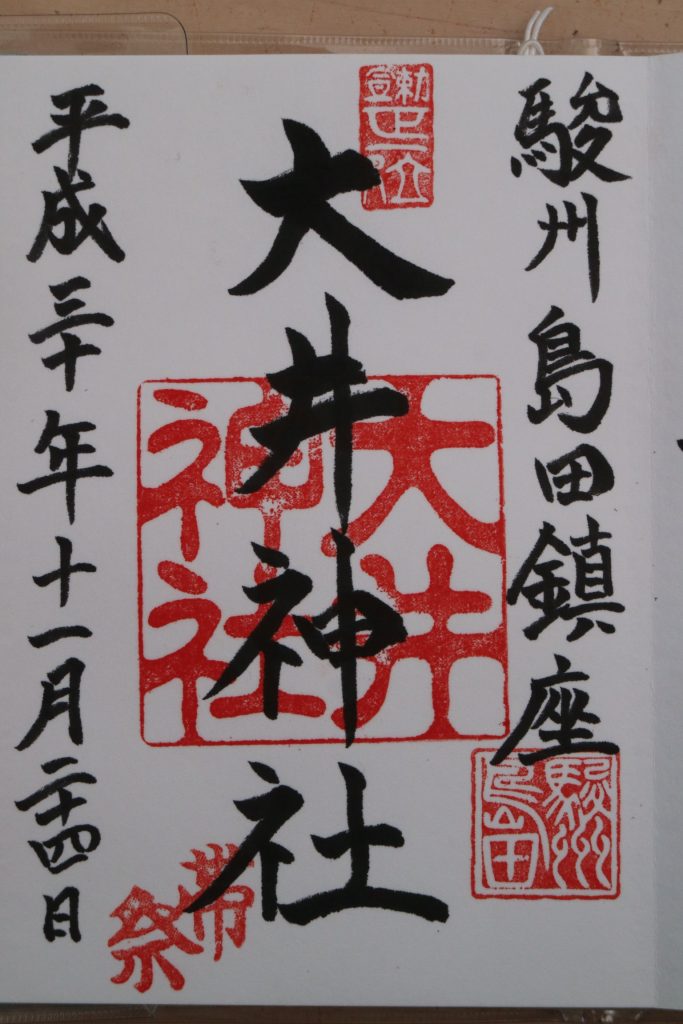 駿州島田鎮座
大井神社
平成三十年十一月二十四日
大井
神社
駿州
島田
帯
祭